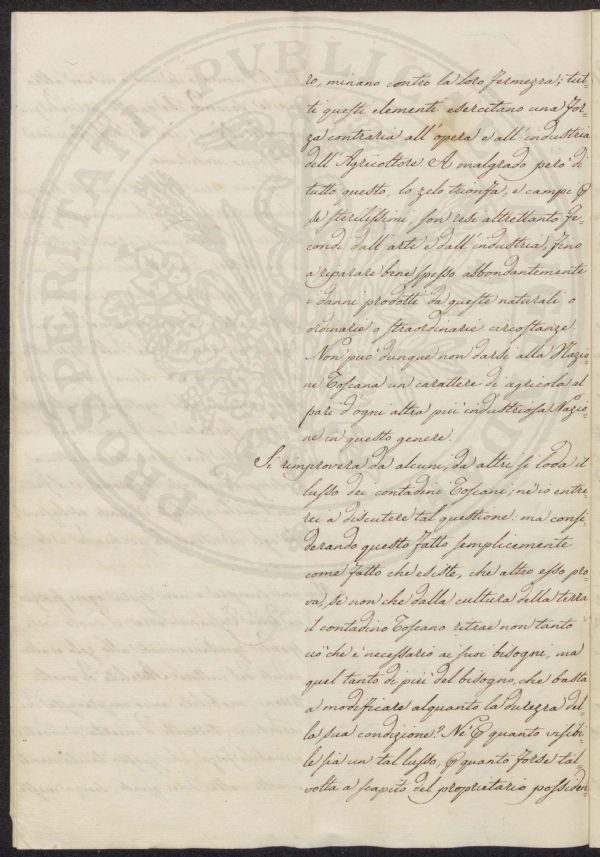 ro, minano contro la loro fermezza; tut-
ti questi elementi esercitano una for-
za contraria all'opera e all'industria
dell'Agricoltore. A malgrado però di
tutto questo, lo zelo trionfa, e campi
sterilissimi, son resi altrettanto fe-
condi dall'arte e dall'industria, fino
a riparare bene spesso abbondantemente
i danni prodotti da queste naturali o
ordinarie o straordinarie circostanze.
Non può dunque non darsi alla Nazio-
ne Toscana un carattere di agricola al
pari d'ogni altra più industriosa Nazio-
ne in questo genere.
Si rimprovera da alcuni, da altri si loda il
lusso dei contadini Toscani; nè io entre-
rei a discutere tal questione: ma consi-
derando questo fatto semplicemente
come fatto che esiste, che altro esso pro-
va, se non che dalla cultura della terra
il contadino Toscano retrae non tanto
ciò che è necessario ai suoi bisogni, ma
quel tanto di più del bisogno, che basta
a modificare alquanto la durezza del-
la sua condizione? Nè quanto visibi-
le sia un tal lusso, quanto forse tal
volta a scapito del proprietario possiden-
PROSPERITATI PVBLIC